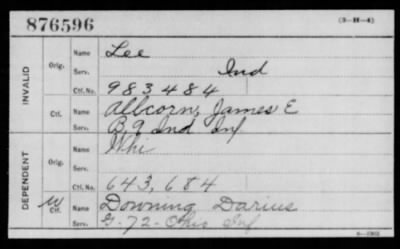 876596 (3-H-4)
INVALID
Orig.
Name Lee
Serv. Ind
Ctf. No. 983484
Ctf.
Name Allcorn, James E
Serv. B. 9 Ind Inf
DEPENDENT
Orig.
Name Whi
Serv.
Ctf. No. 643,684
W
Ctf.
Name Downing Darius
Serv. G-72-Ohio Inf